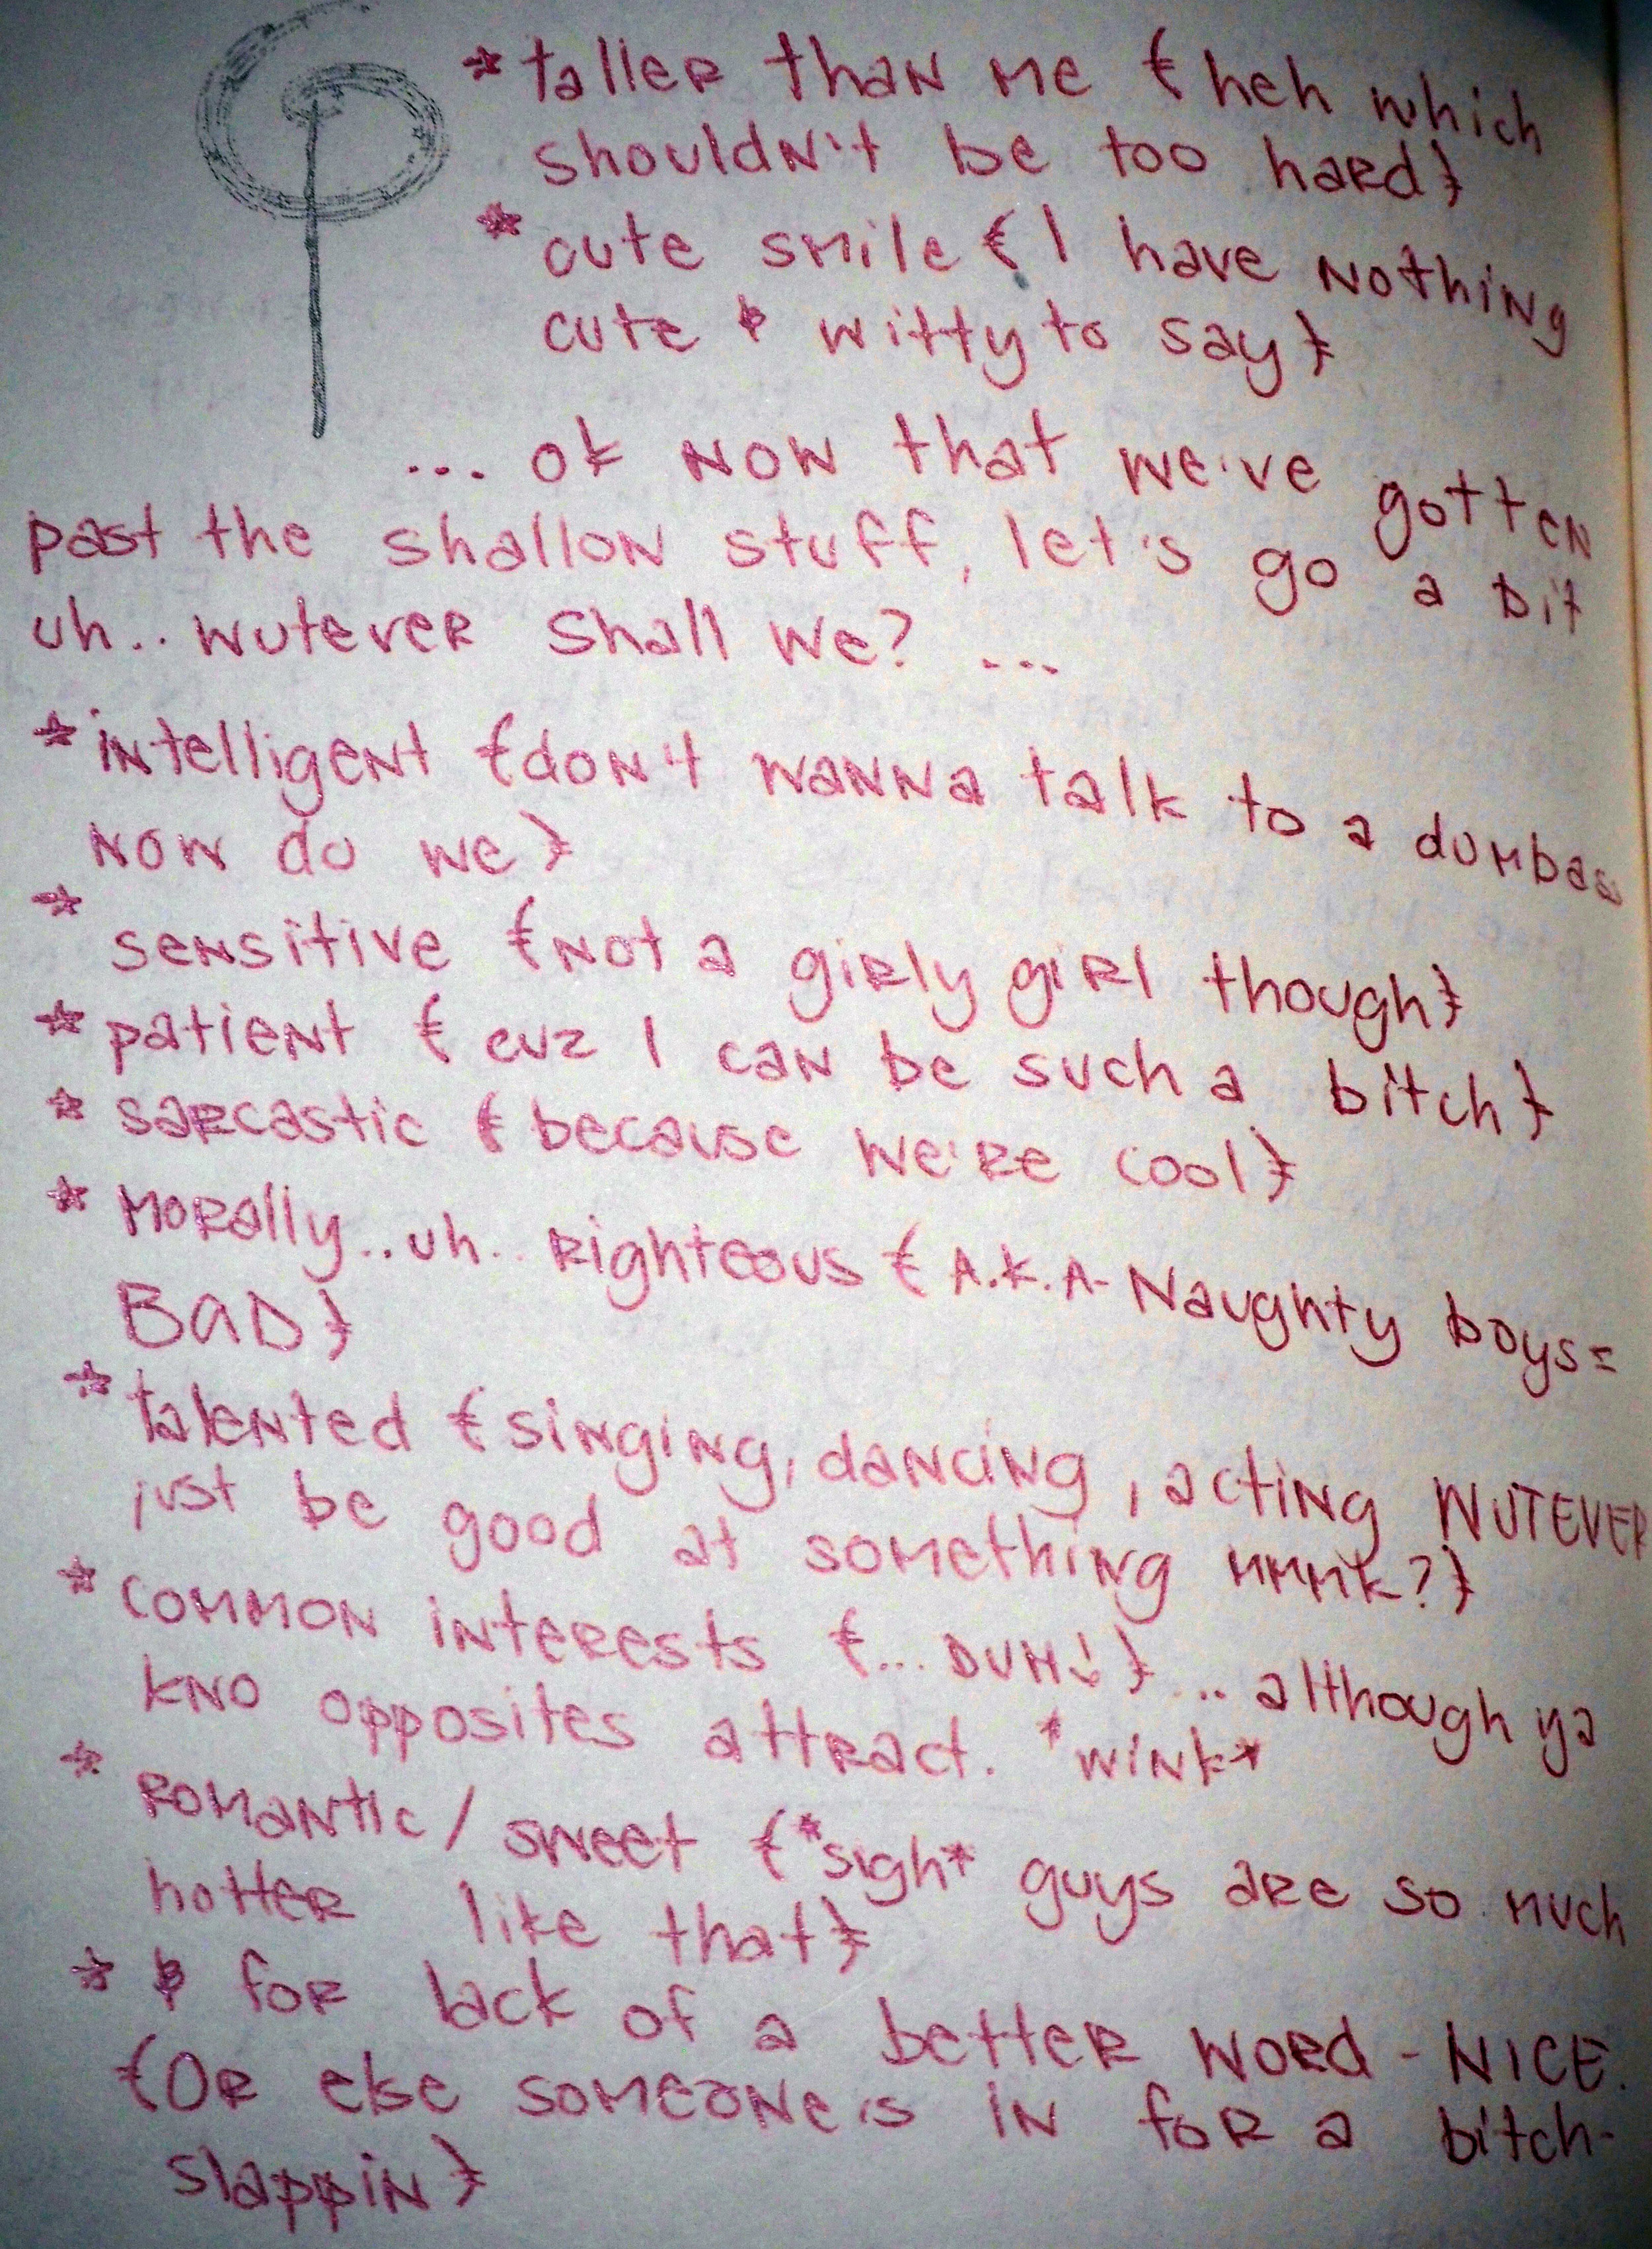 * taller than me {heh which
shouldn't be too hard}
* cute smile {I have nothing
cute & witty to say}
... ok now that we've gotten
past the shallow stuff, let's go a bit
uh.. wutever shall we? ...
* intelligent {don't wanna talk to a dumbass
now do we}
* sensitive {not a girly girl though}
* patient {cuz I can be such a bitch}
* sarcastic {because we're cool}
* Morally..uh.. righteous {A.K.A- Naughty boys=
BAD}
* talented {singing, dancing, acting WUTEVER
just be good at something mmmk?}
* common interests {... DUH!}... although ya
kno opposites attract. *wink*
* romantic/sweet {*sigh* guys are so much
hotter like that}
* & for lack of a better word - NICE.
{Or else someone's in for a bitch-
slappin}